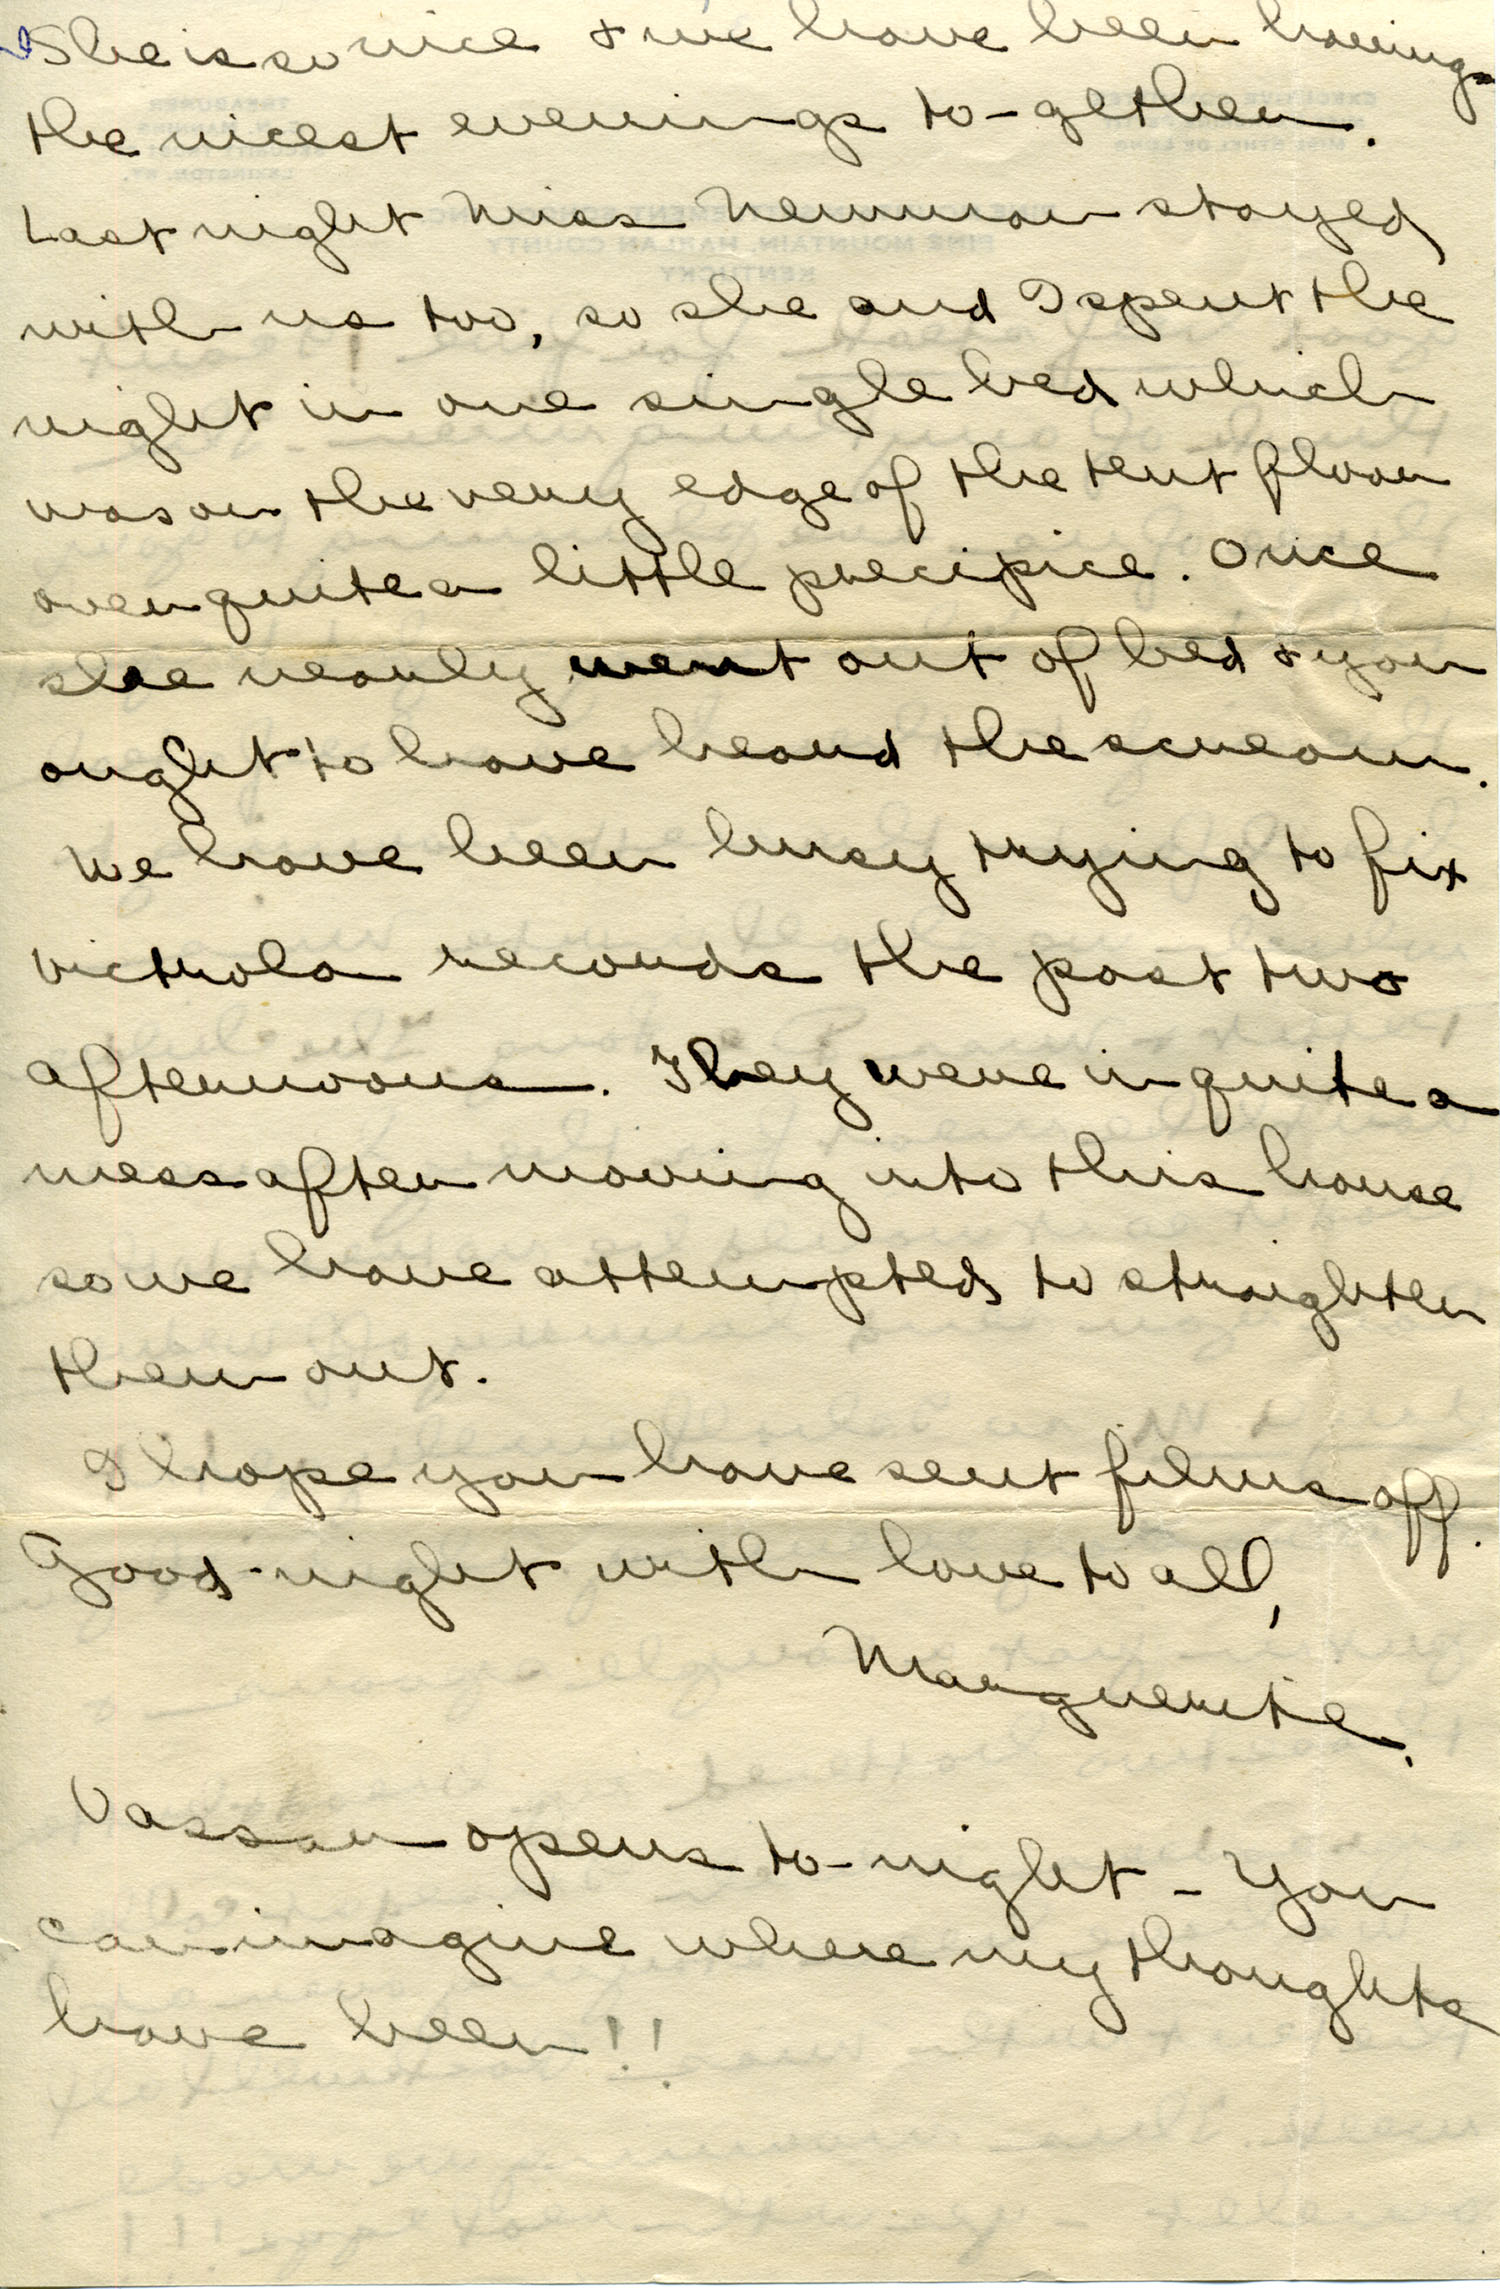 She is so nice & we have been having
the nicest evenings to-gether.
Last night Miss Newman stayed
with us too, so she and I spent the
night in one single bed which
was on the very edge of the tent floor
over quite a little precipice. Once
she nearly went out of bed & you
ought to have heard the scream.
We have been busy trying to fix
victrola records the past two
afternoons. They were in quite a
mess after moving into this house
so we have attempted to straighten
them out.
I hope you have sent films off.
Good-night with love to all,
Marguerite.
Vassar opens to-night - You
can imagine where my thoughts
have been!!